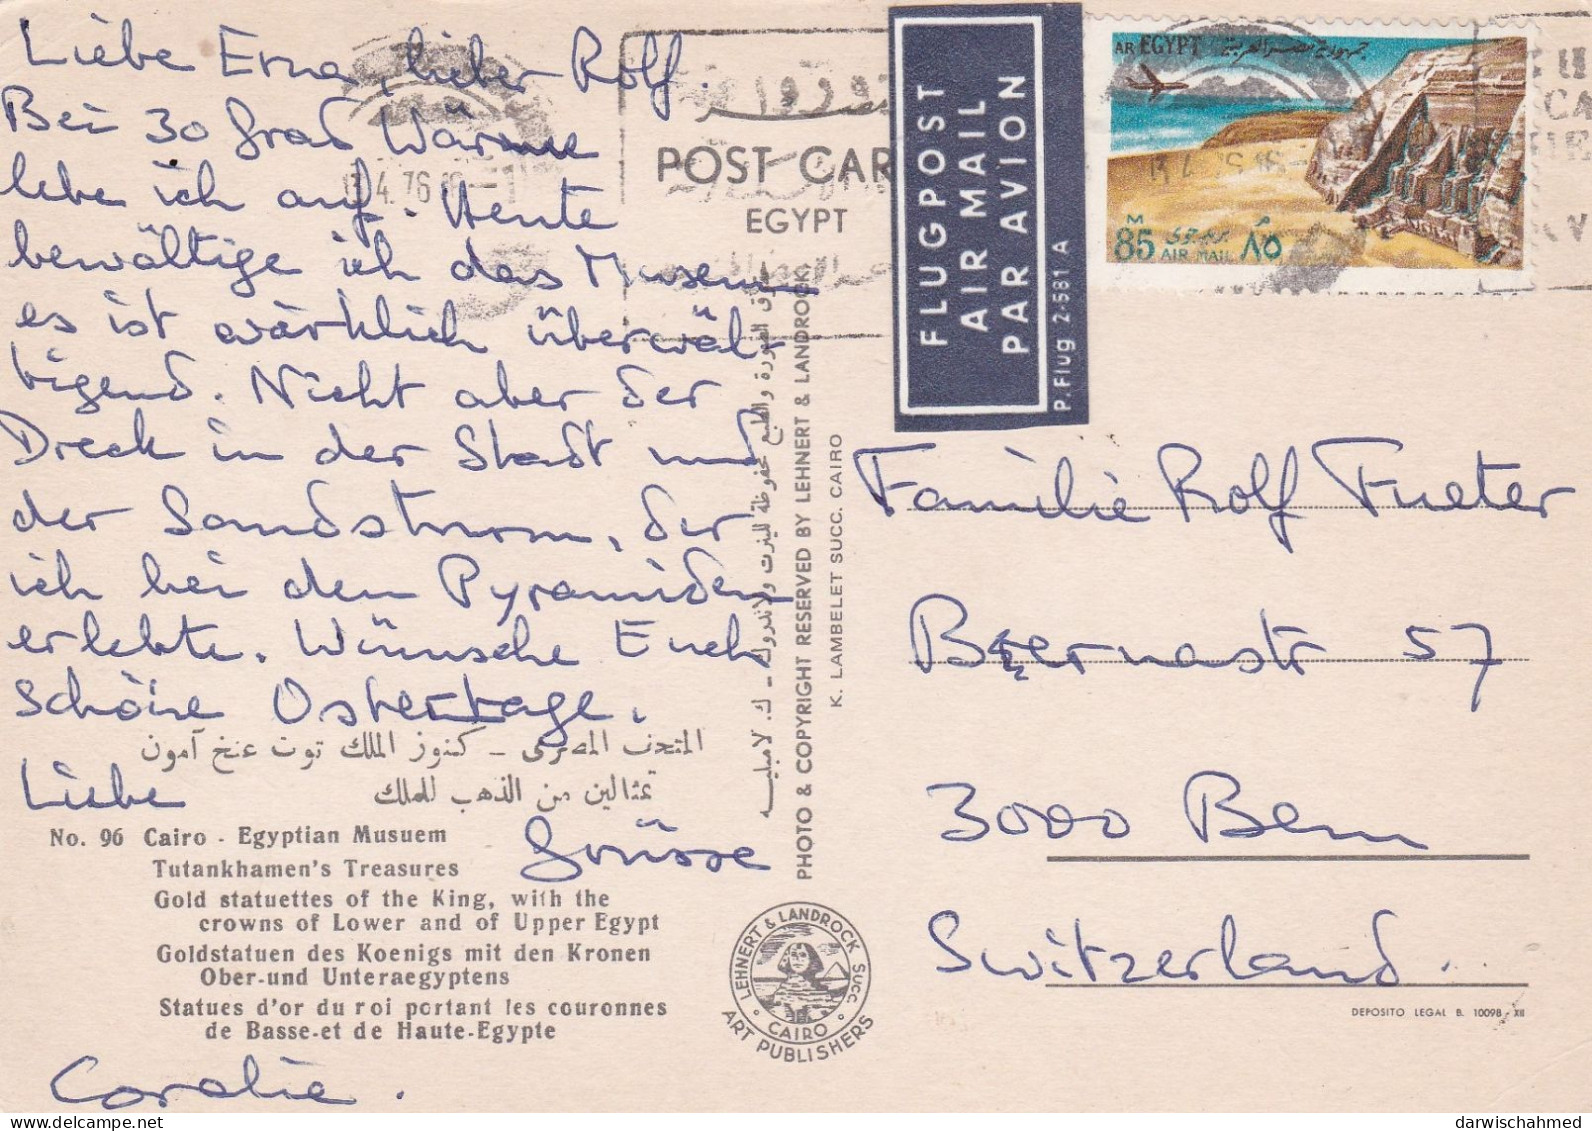 Liebe Erna, lieber Rolf.
Bei 30 Grad Wärme
lebe ich auf. Heute
bewältige ich das Museum
es ist wärklich überwäl-
tigend. Nicht aber der
Dreck in der Stadt und
der Sandsturm, der
ich bei den Pyramiden
erlebte. Wünsche Euch
schöne Ostertage.
Liebe
Grüsse
Coralie.
المتحف المصرى - كنوز الملك توت عنخ آمون
تمثالين من الذهب للملك
No. 96 Cairo - Egyptian Musuem
Tutankhamen's Treasures
Gold statuettes of the King, with the
crowns of Lower and of Upper Egypt
Goldstatuen des Koenigs mit den Kronen
Ober-und Unteraegyptens
Statues d'or du roi portant les couronnes
de Basse-et de Haute-Egypte
4.76
POST CAR
EGYPT
PHOTO & COPYRIGHT RESERVED BY LEHNERT & LANDROCK
K. LAMBELET SUCC. CAIRO
LEHNERT & LANDROCK SUCC.
CAIRO
ART PUBLISHERS
FLUGPOST
AIR MAIL
PAR AVION
P. Flug 2-581 A
AR EGYPT جمهورية مصر العربية
M
85
AIR MAIL
بريد جوى
م
٨٥
Familie Rolf Fueter
Bernastr 57
3000 Bern
Switzerland.
DEPOSITO LEGAL B. 10098-XII
darwischahmed